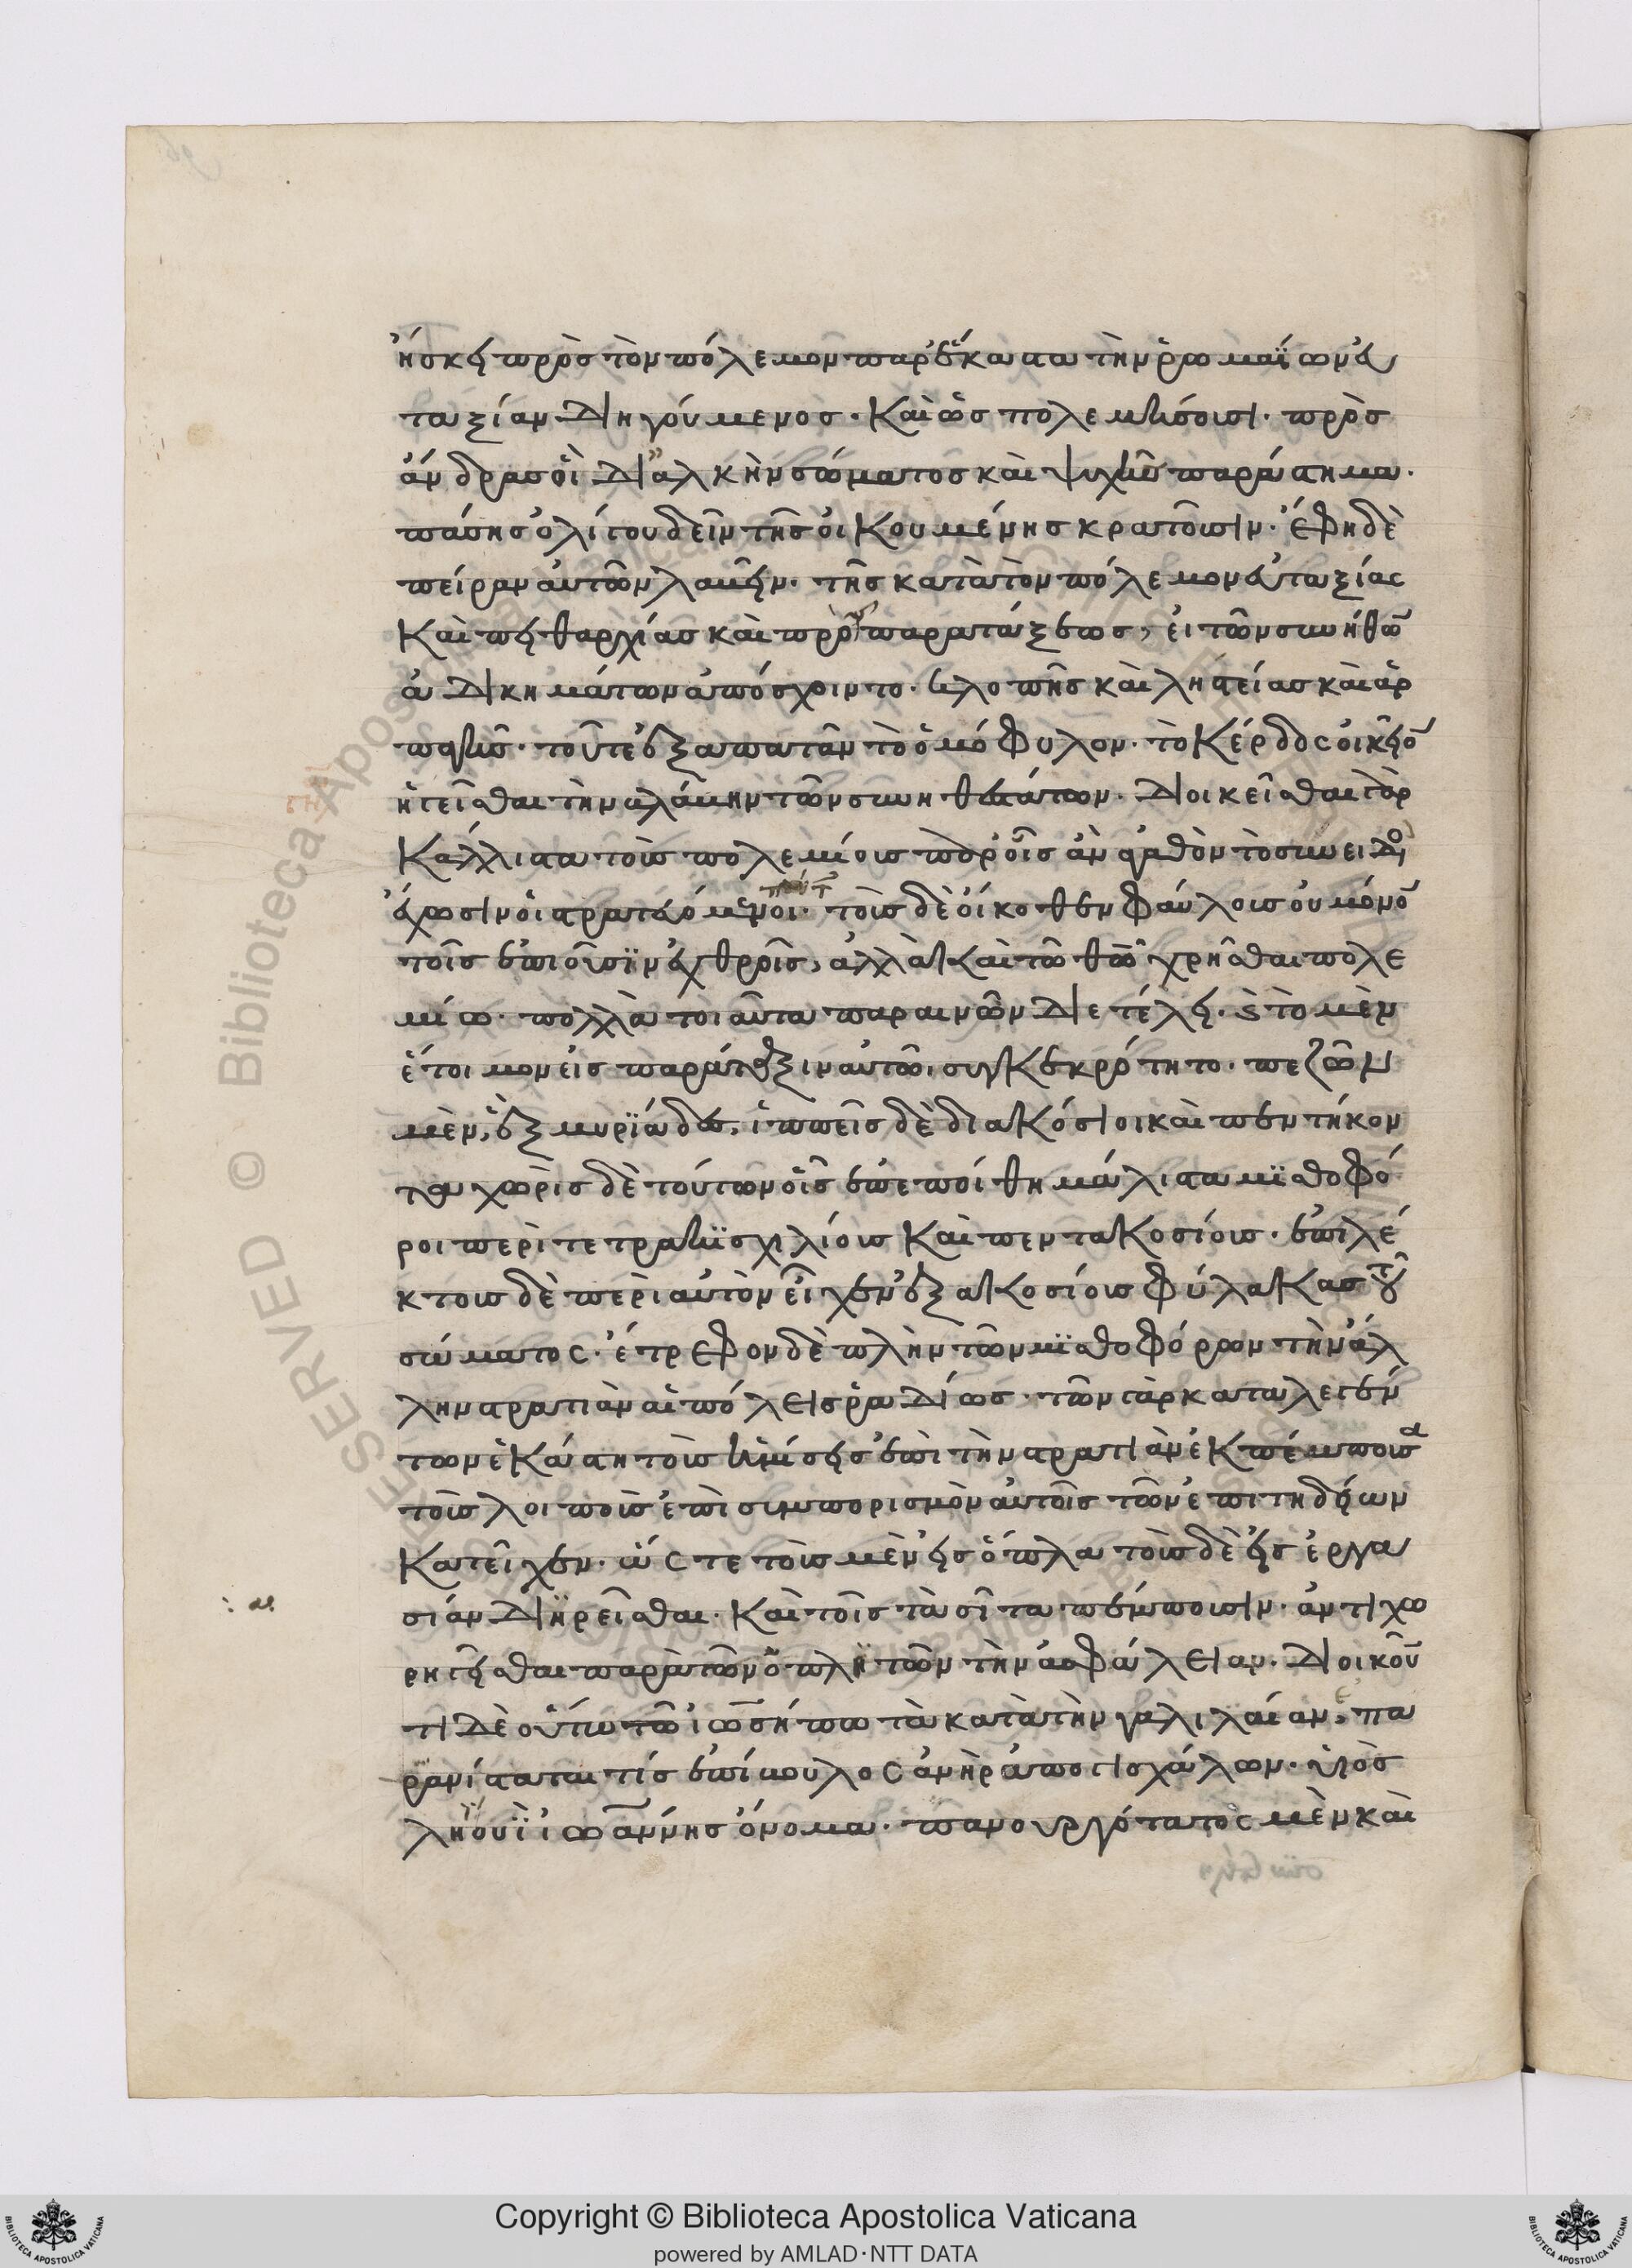 ἤσκει πρὸς τὸν πόλεμον παρέκαστα τὴν ῥωμαίων εὐ
ταξίαν διηγούμενος. καὶ ὡς πολεμήσοισι. πρὸς
ἄνδρας οἳ δι᾽ ἀλκὴν σώματος καὶ ψυχῆς παράστημα.
πάσης ὀλίγου δεῖν τῆς οἰκουμένης κρατοῦσιν. ἔφη δὲ
πεῖραν αὐτῶν λαμβάνειν. τῆς κατὰ τὸν πόλεμον εὐταξίας
καὶ πειθαρχίας καὶ πρὸ παρατάξεως, εἰ τῶν συνήθων
ἀδικημάτων ἀπόσχοιντο. κλοπῆς καὶ ληστείας καὶ ἁρ
παγῆς. τοῦ τε ἐξαπατᾶν τὸ ὁμόφυλον. τὸ κέρδος οἰκεῖον
ἡγεῖσθαι τὴν βλάβην τῶν συνηθεστάτων. διοικεῖσθαι γὰρ
κάλλιστα τοὺς πολέμους παρ᾽ οἷς ἂν ἀγαθὸν τὸ συνειδὸς
ἔχωσιν οἱ στρατευόμενοι. τοὺς δὲ οἴκοθεν φαύλους οὐ μόνον
τοῖς ἐπιοῦσιν ἐχθροῖς, ἀλλὰ καὶ τῷ θεῷ χρῆσθαι πολε
μίῳ. πολλὰ τοιαῦτα παραινῶν διετέλει. καὶ τὸ μὲν
ἕτοιμον εἰς παράταξιν αὐτῷ, συγκεκρότητο. πεζῶν
μὲν, ἓξ μυριάδες, ἱππεῖς δὲ διακόσιοι καὶ πεντήκον
τα χωρὶς δὲ τούτων οἷς ἐπεποίθη μάλιστα μισθοφό
ροι περὶ τετρακισχιλίους καὶ πεντακοσίους. ἐπιλέ
κτους δὲ περὶ αὐτὸν εἶχεν ἑξακοσίους φύλακας τοῦ
σώματος. ἔτρεφον δὲ πλὴν τῶν μισθοφόρων τὴν ἄλ
λην στρατιὰν αἱ πόλεις ῥᾳδίως. τῶν γὰρ καταλεγέν
των ἑκάστη τοὺς ἡμίσεις ἐπὶ τὴν στρατιὰν ἐκπέμπουσα
τοὺς λοιποὺς ἐπὶ συμπορισμὸν αὐτοῖς τῶν ἐπιτηδείων
κατεῖχεν. ὥς τε τοὺς μὲν εἰς ὅπλα τοὺς δὲ εἰς ἐργα
σίαν διῃρεῖσθαι. καὶ τοῖς τὰ σῖτα πέμπουσιν. ἀντιχο
ρηγεῖσθαι παρὰ τῶν ὁπλιτῶν τὴν ἀσφάλειαν. διοικοῦν
τι δὲ οὕτω τῷ ἰωσήπῳ τὰ κατὰ τὴν γαλιλαίαν, πα
ρανίσταται τίς ἐπίβουλος ἀνὴρ ἀπὸ γισχάλων. υἱὸς
ληουῒ ἰωάννης ὄνομα. πανουργότατος μὲν καὶ